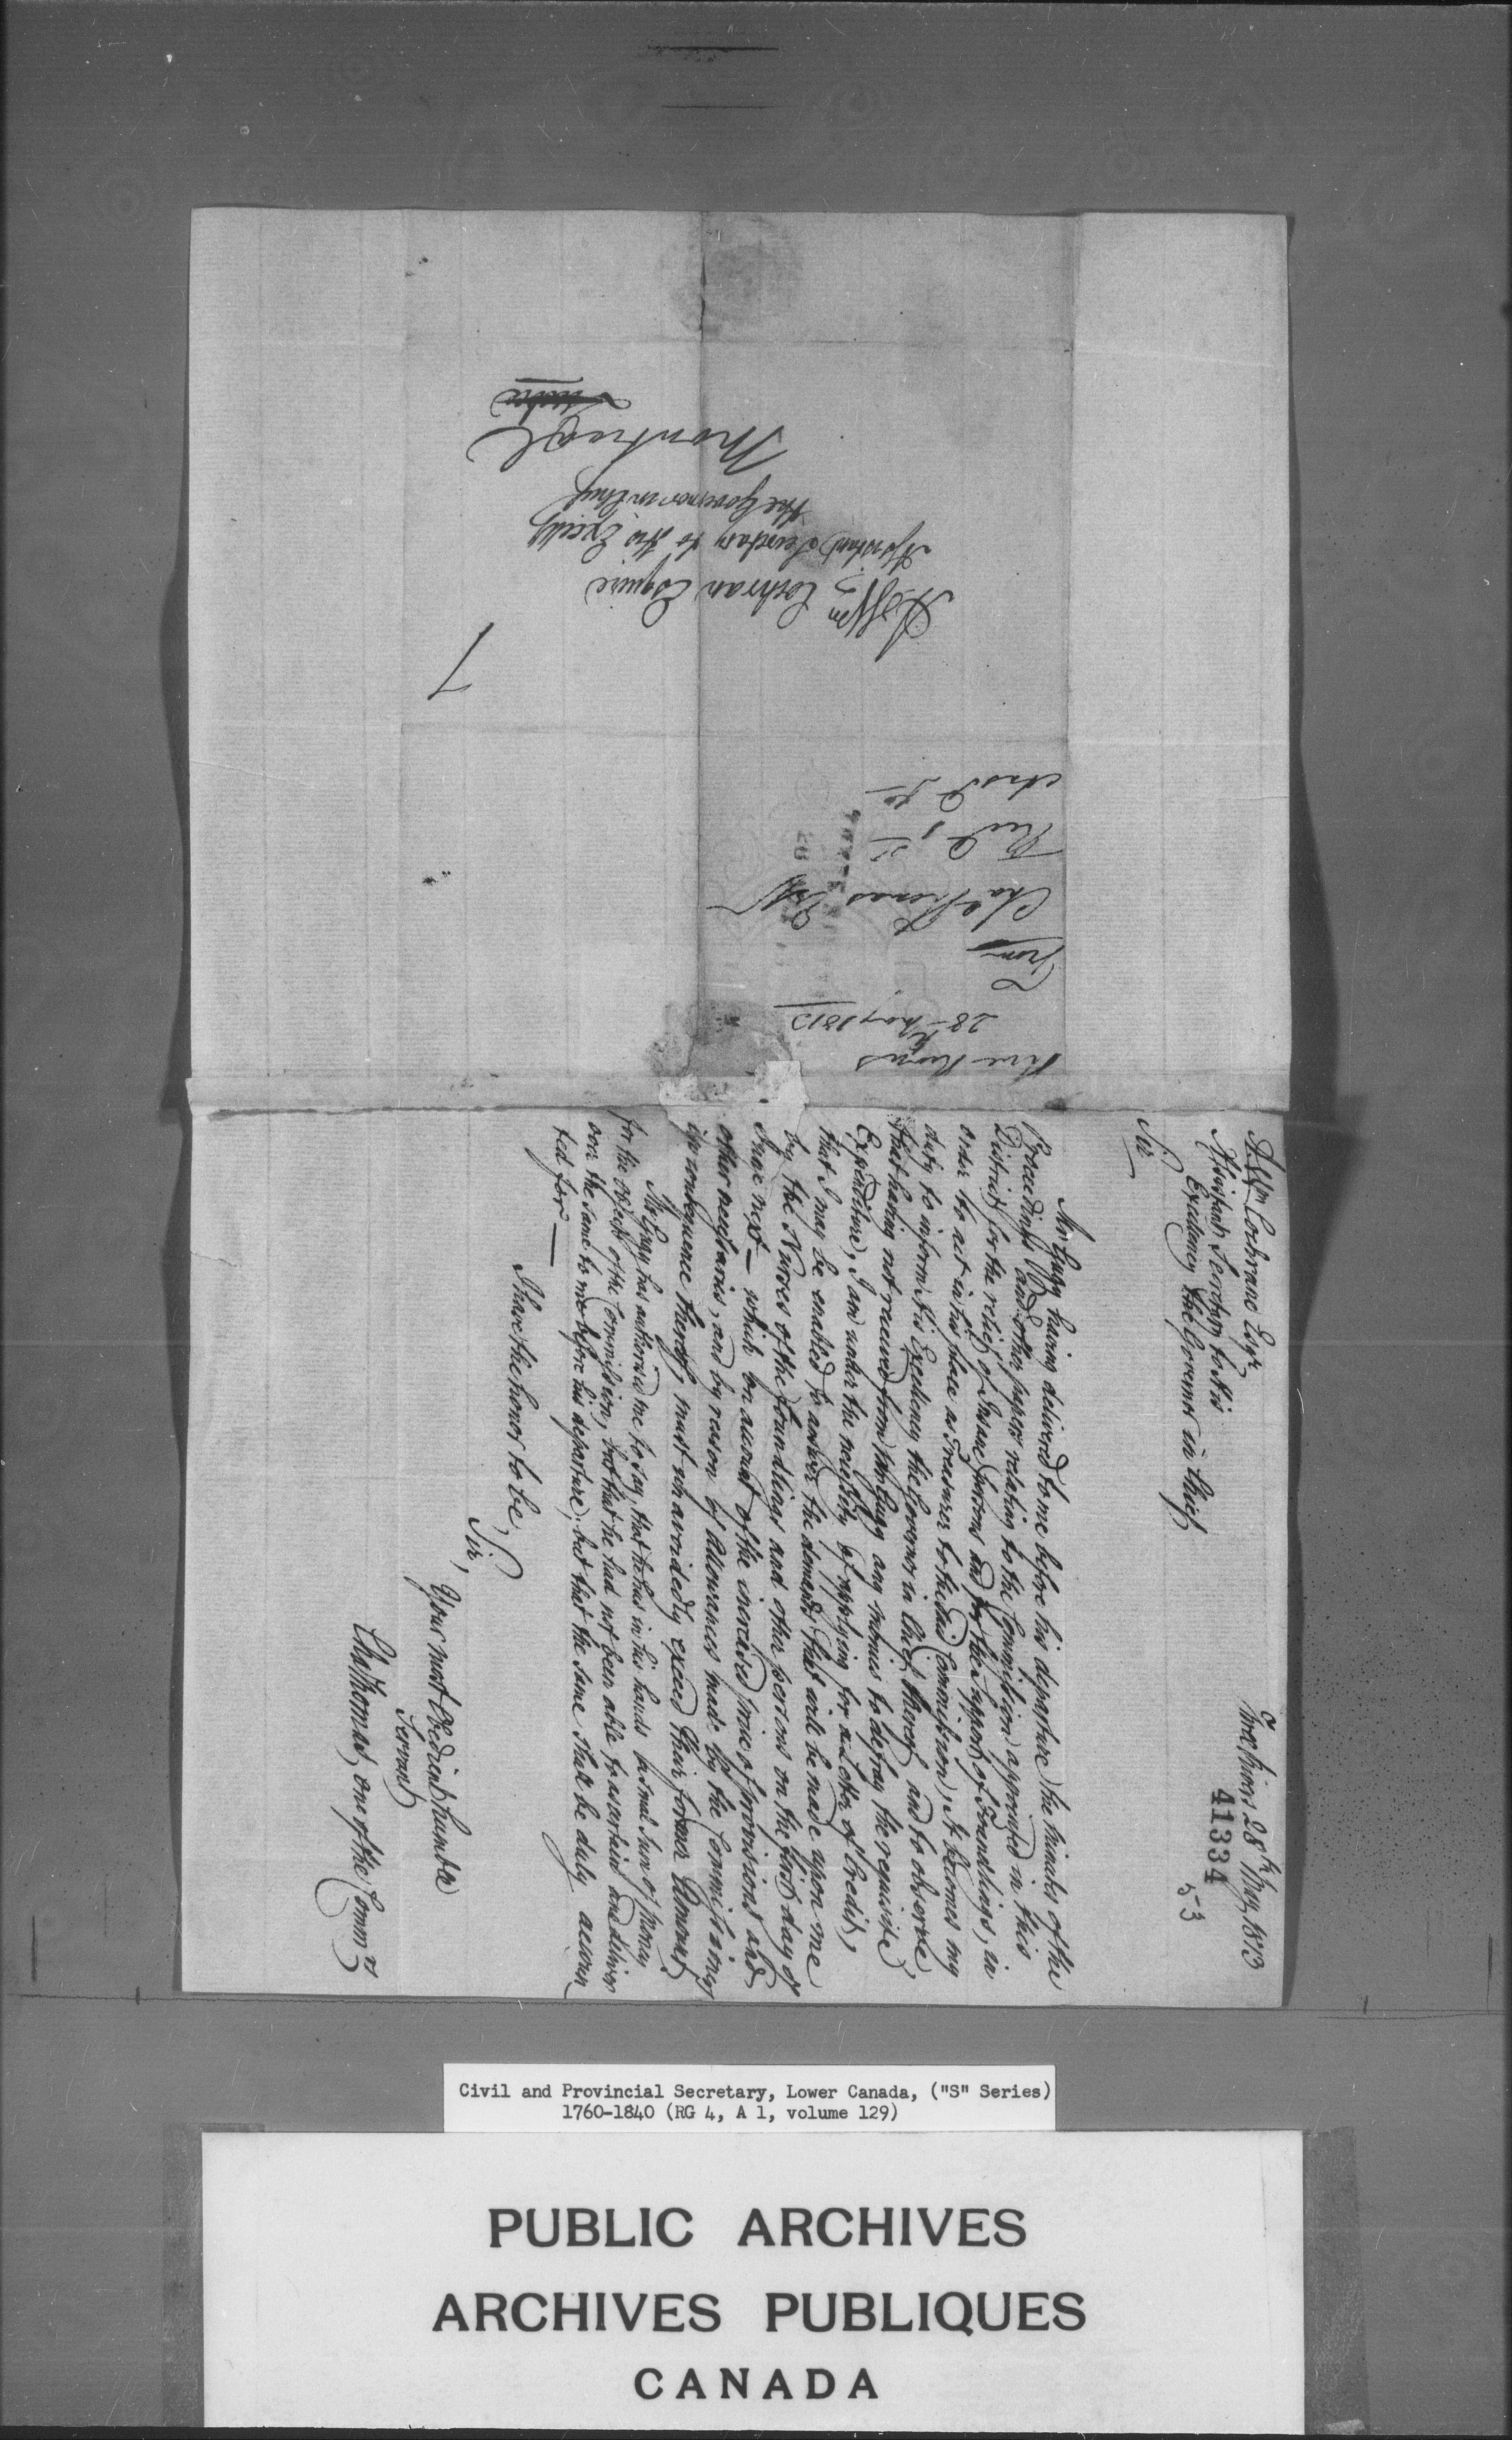 Three Rivers 28th May 1813
41334
53
A. Wm Cochrane Esqr
Assistant Secretary to His
Excellency the Governor in Chief
Sir
Mr Gugy having delivered to me before his departure the minutes of the
Proceedings and other papers relating to the Commission appointed in this
District for the relief of Insane persons and for the support of Foundlings, in
order to act in his place as Treasurer to the said Commission, It becomes my
duty to inform His Excellency the Governor in Chief thereof and to observe
that having not received from Mr Gugy any monies to defray the requisite
Expenditure, I am under the necessity of applying for a Letter of Credit,
that I may be enabled to answer the demands that will be made upon me
by the Nurses of the foundlings and other persons on the first day of
June next — which on account of the increased price of provisions and
other necessaries, and by reason of allowances made by the Commissioners
in consequence thereof must unavoidedly exceed their former Amount.
Mr Gugy has authorised me to say, that he has in his hands a small sum of money
for the objects of the Commission, but that he had not been able to ascertain and deliver
over the same to me before his departure; but that the same shall be duly accoun
ted for —
I have the honor to be,
Sir,
Your most Obedient humble
Servant
Chs Thomas, one of the Commrs
Three Rivers
28th May 1813
From
Chs Thomas Esqr
Recd
7
A. Wm Cochran Esquire
Assistant Secretary to His Excelly
the Governor in Chief
Montreal
Civil and Provincial Secretary, Lower Canada, ("S" Series)
1760-1840 (RG 4, A 1, volume 129)
PUBLIC ARCHIVES
ARCHIVES PUBLIQUES
CANADA